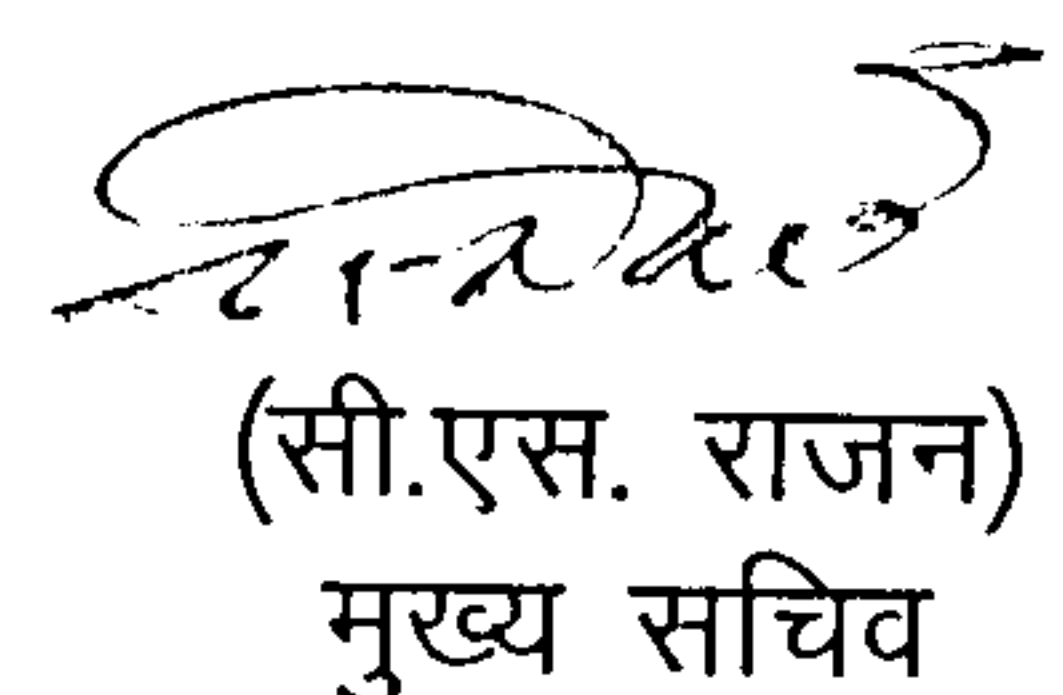 (सी.एस. राजन)
मुख्य सचिव